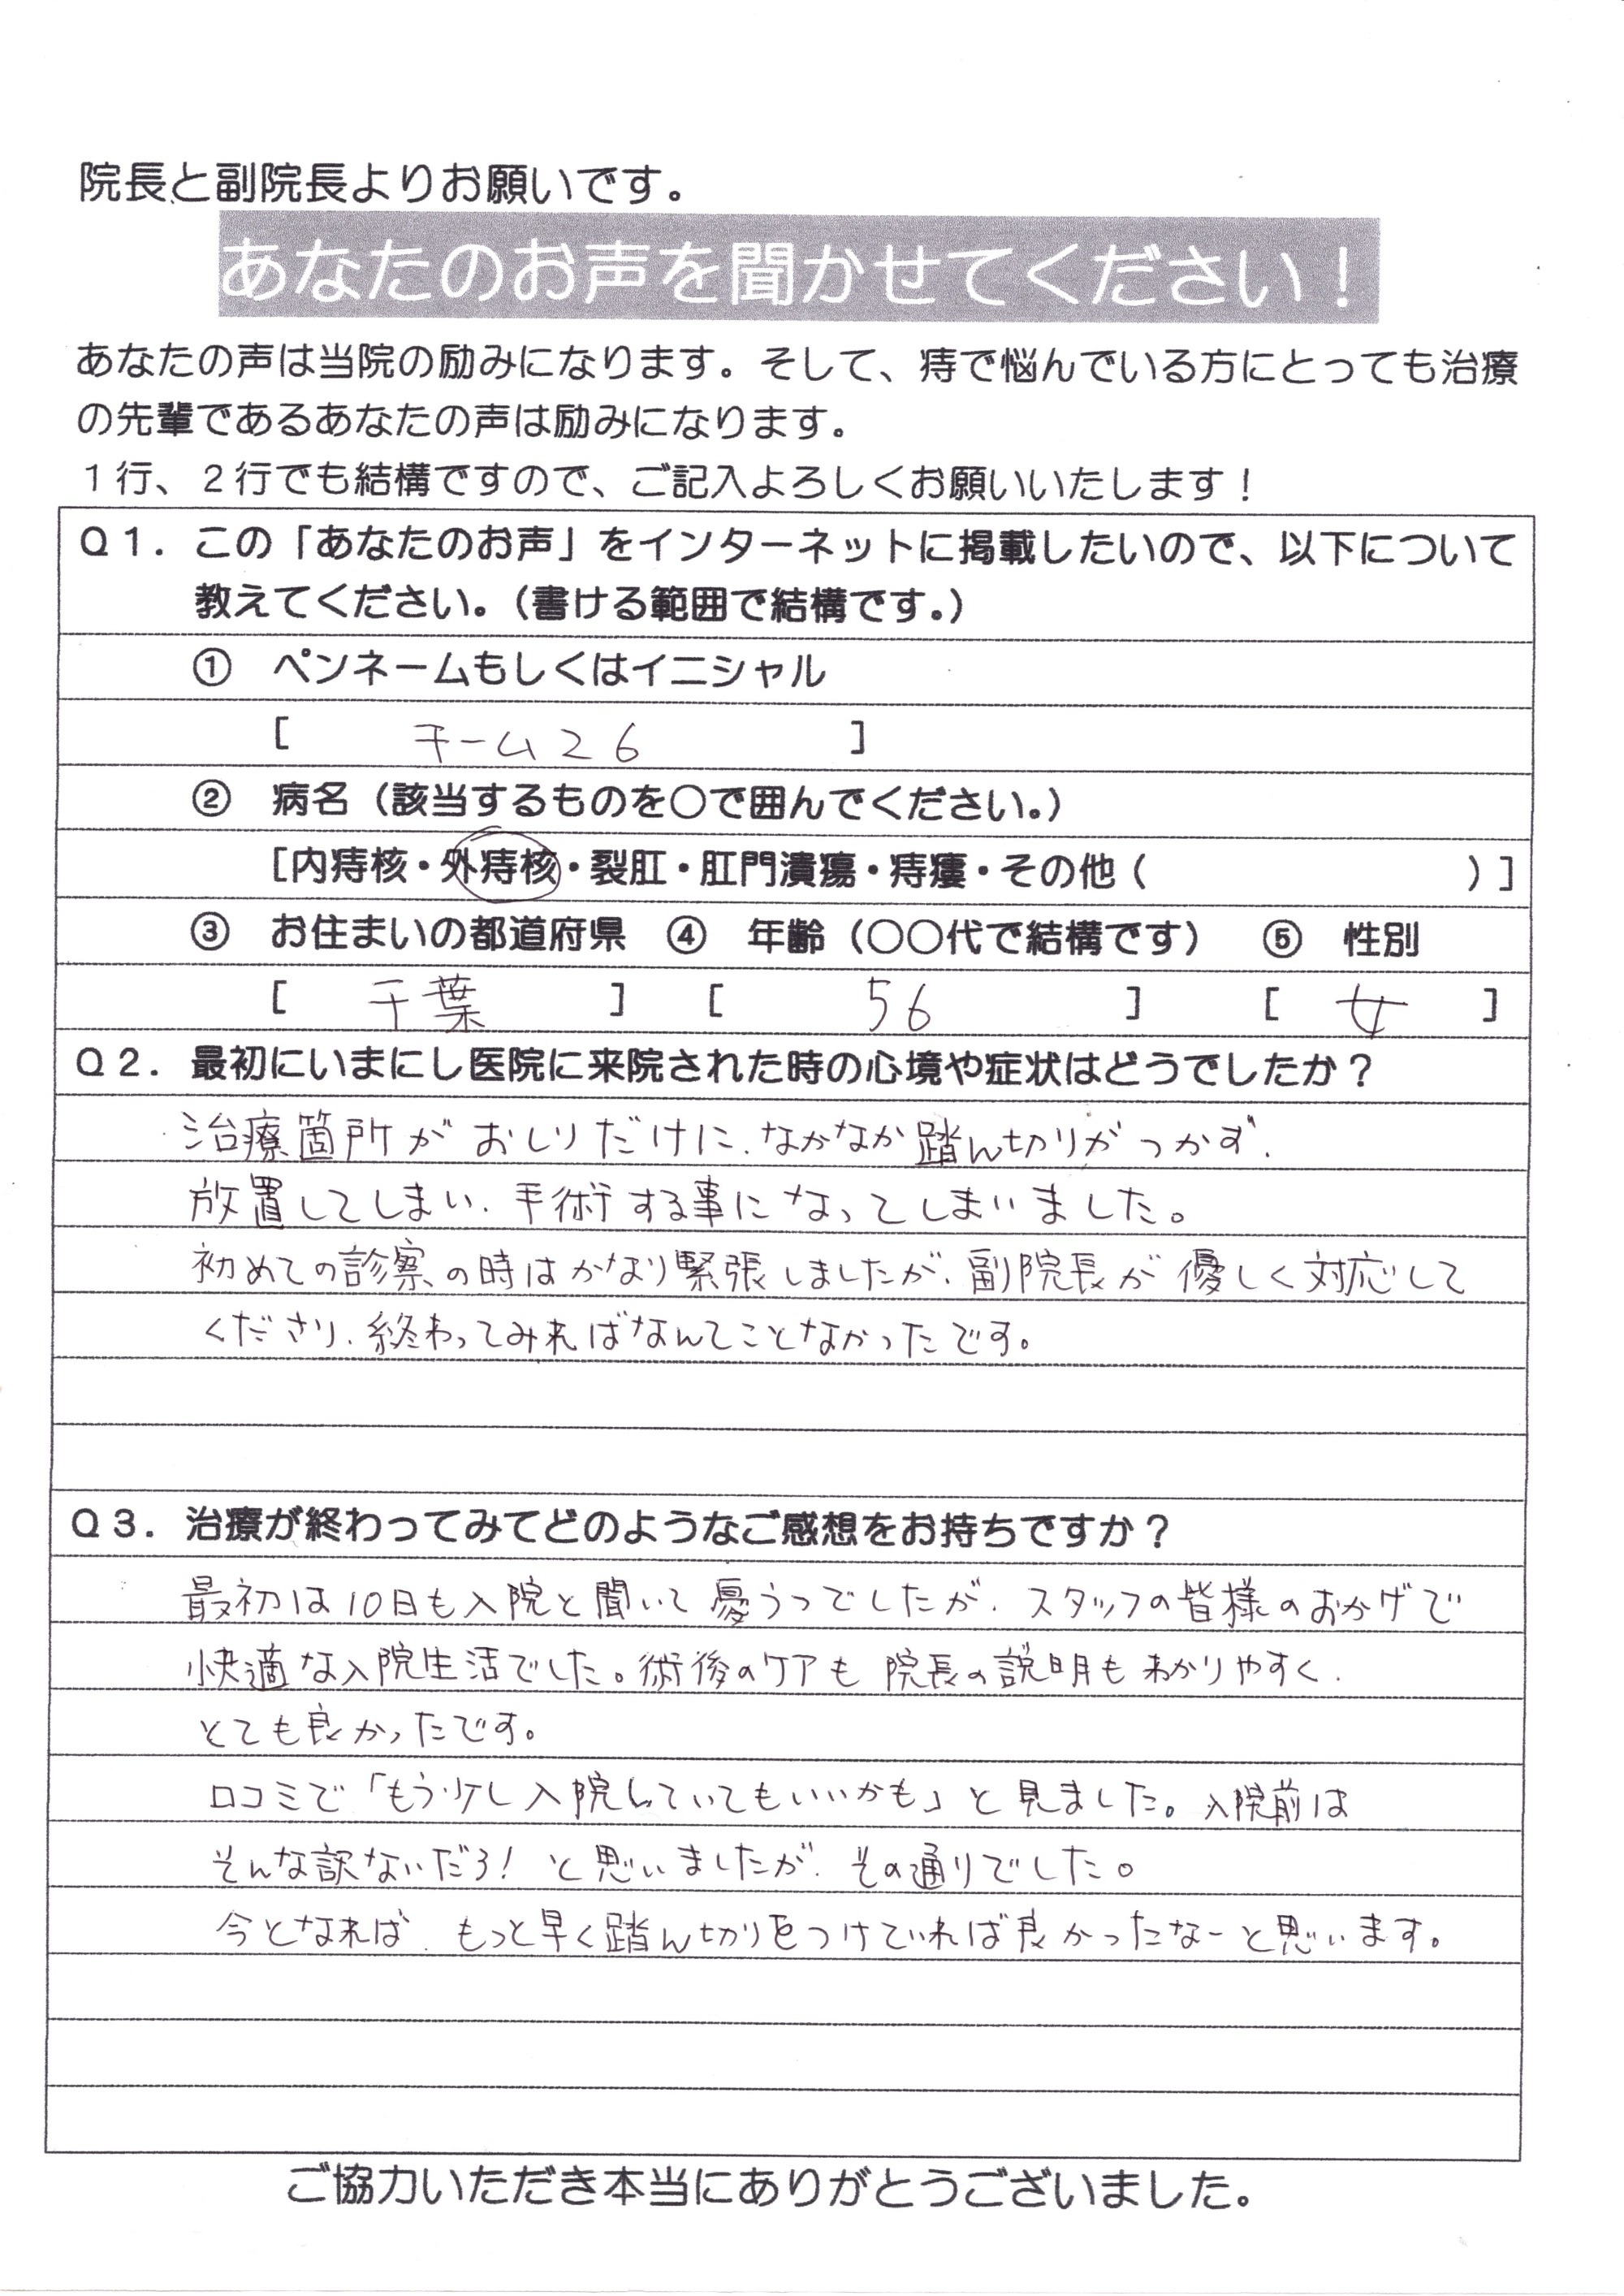 院長と副院長よりお願いです。
あなたのお声を聞かせてください！
あなたの声は当院の励みになります。そして、痔で悩んでいる方にとっても治療
の先輩であるあなたの声は励みになります。
１行、２行でも結構ですので、ご記入よろしくお願いいたします！
Ｑ１．この「あなたのお声」をインターネットに掲載したいので、以下について
教えてください。（書ける範囲で結構です。）
① ペンネームもしくはイニシャル
[ チーム26 ]
② 病名（該当するものを○で囲んでください。）
[内痔核・外痔核・裂肛・肛門潰瘍・痔瘻・その他（ ）]
③ お住まいの都道府県 ④ 年齢（○○代で結構です） ⑤ 性別
[ 千葉 ] [ 56 ] [ 女 ]
Ｑ２．最初にいまにし医院に来院された時の心境や症状はどうでしたか？
治療箇所がおしりだけに、なかなか踏ん切りがつかず、
放置してしまい、手術する事になってしまいました。
初めての診察の時はかなり緊張しましたが、副院長が優しく対応して
くださり、終わってみればなんてことなかったです。
Ｑ３．治療が終わってみてどのようなご感想をお持ちですか？
最初は10日も入院と聞いて憂うつでしたが、スタッフの皆様のおかげで
快適な入院生活でした。術後のケアも院長の説明もわかりやすく、
とても良かったです。
口コミで「もう少し入院していてもいいかも」と見ました。入院前は
そんな訳ないだろ！と思いましたが、その通りでした。
今となれば、もっと早く踏ん切りをつけていれば良かったなーと思います。
ご協力いただき本当にありがとうございました。